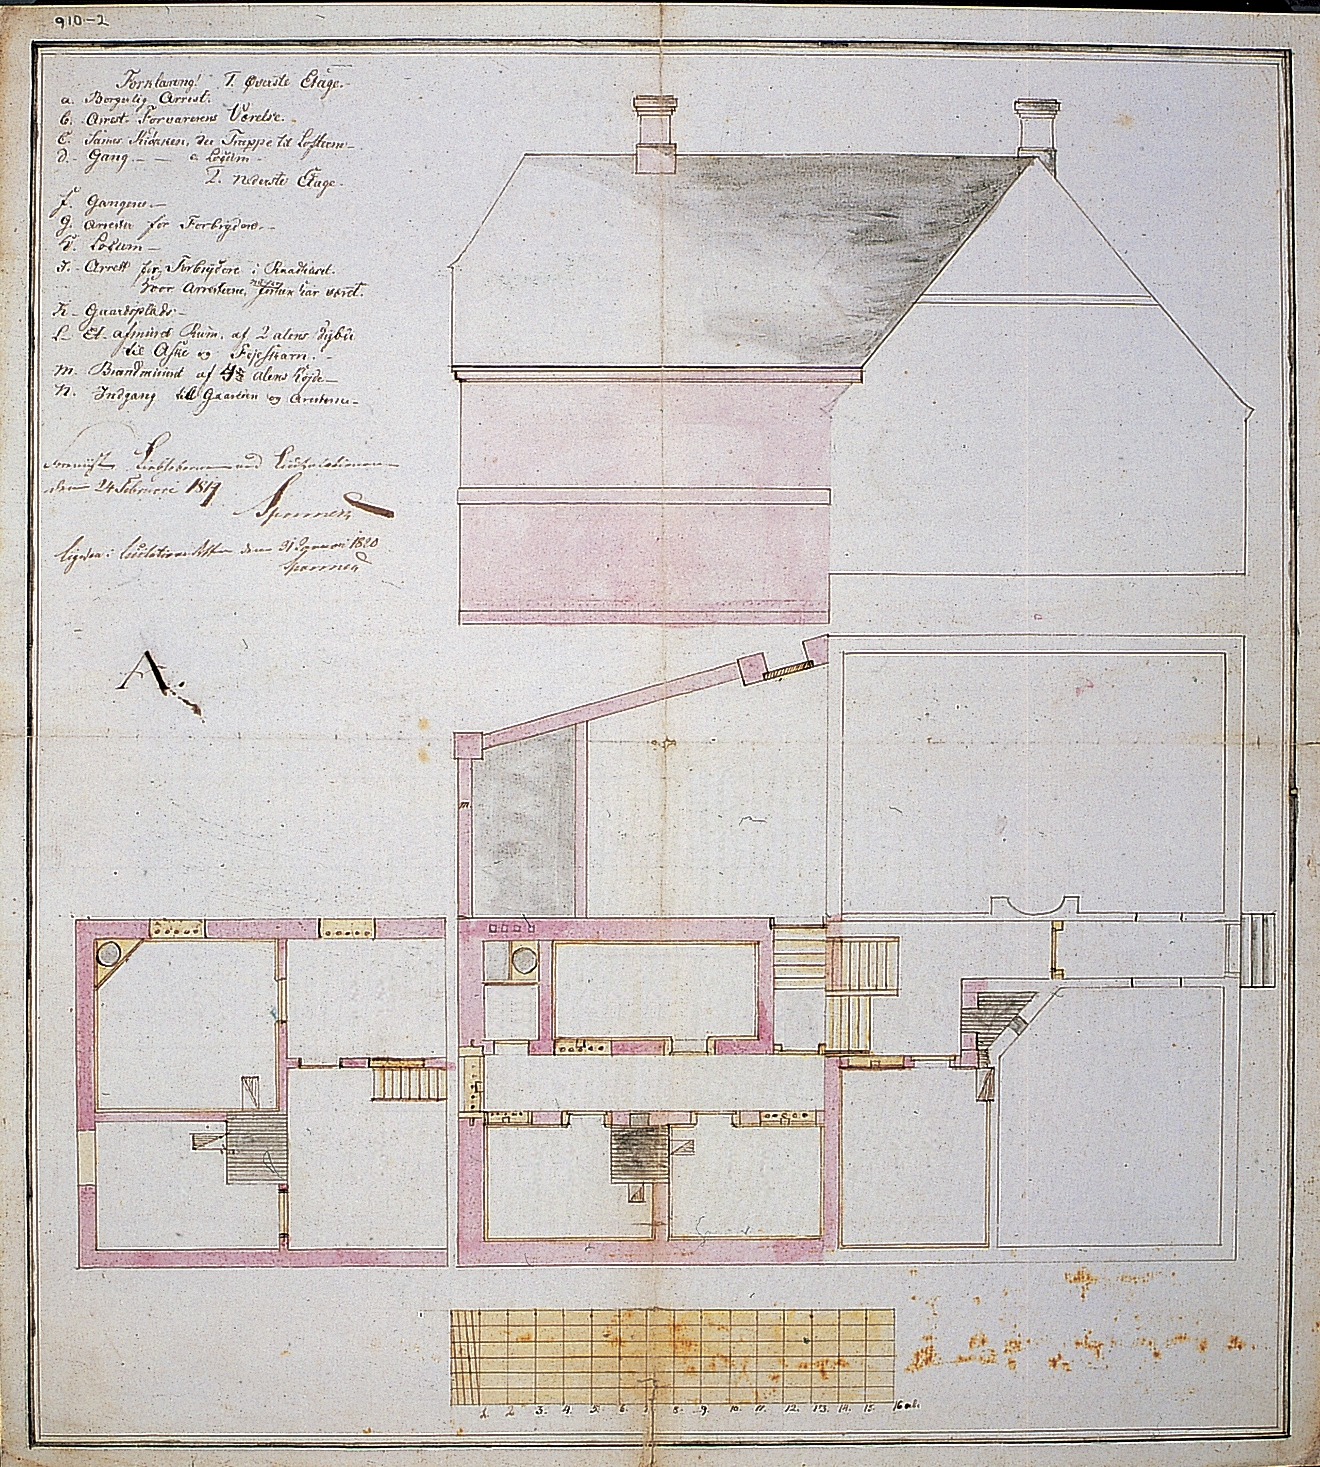 910-2
Forklaring! 1. Øverste Etage.
a. Borgerlig Arrest.
b. Arrest Forvarerens Værelse.
C. Sammes Kiøkken, der Trappe til Lofterne
d. Gang e. Locum
2. Nederste Etage.
f. Gangene
g. Arrester for Forbrydere.
h. Locum
I. Arrest for Forbrydere i Raadhuset.
hvor Arresterne, har været.
K. Gaardsplads
L. Et afmuret Rum, af 2 alens Dybde
til Aske og Fejeskarn.
m. Brandmuur af alens Høide
N. Indgang til Gaarden og Aresterne
den 24 Februari 1819
den 31 Januari 1820
A.
m.
1. 2. 3. 4. 5. 6. 7. 8. 9. 10. 11. 12. 13. 14. 15. 16 al.